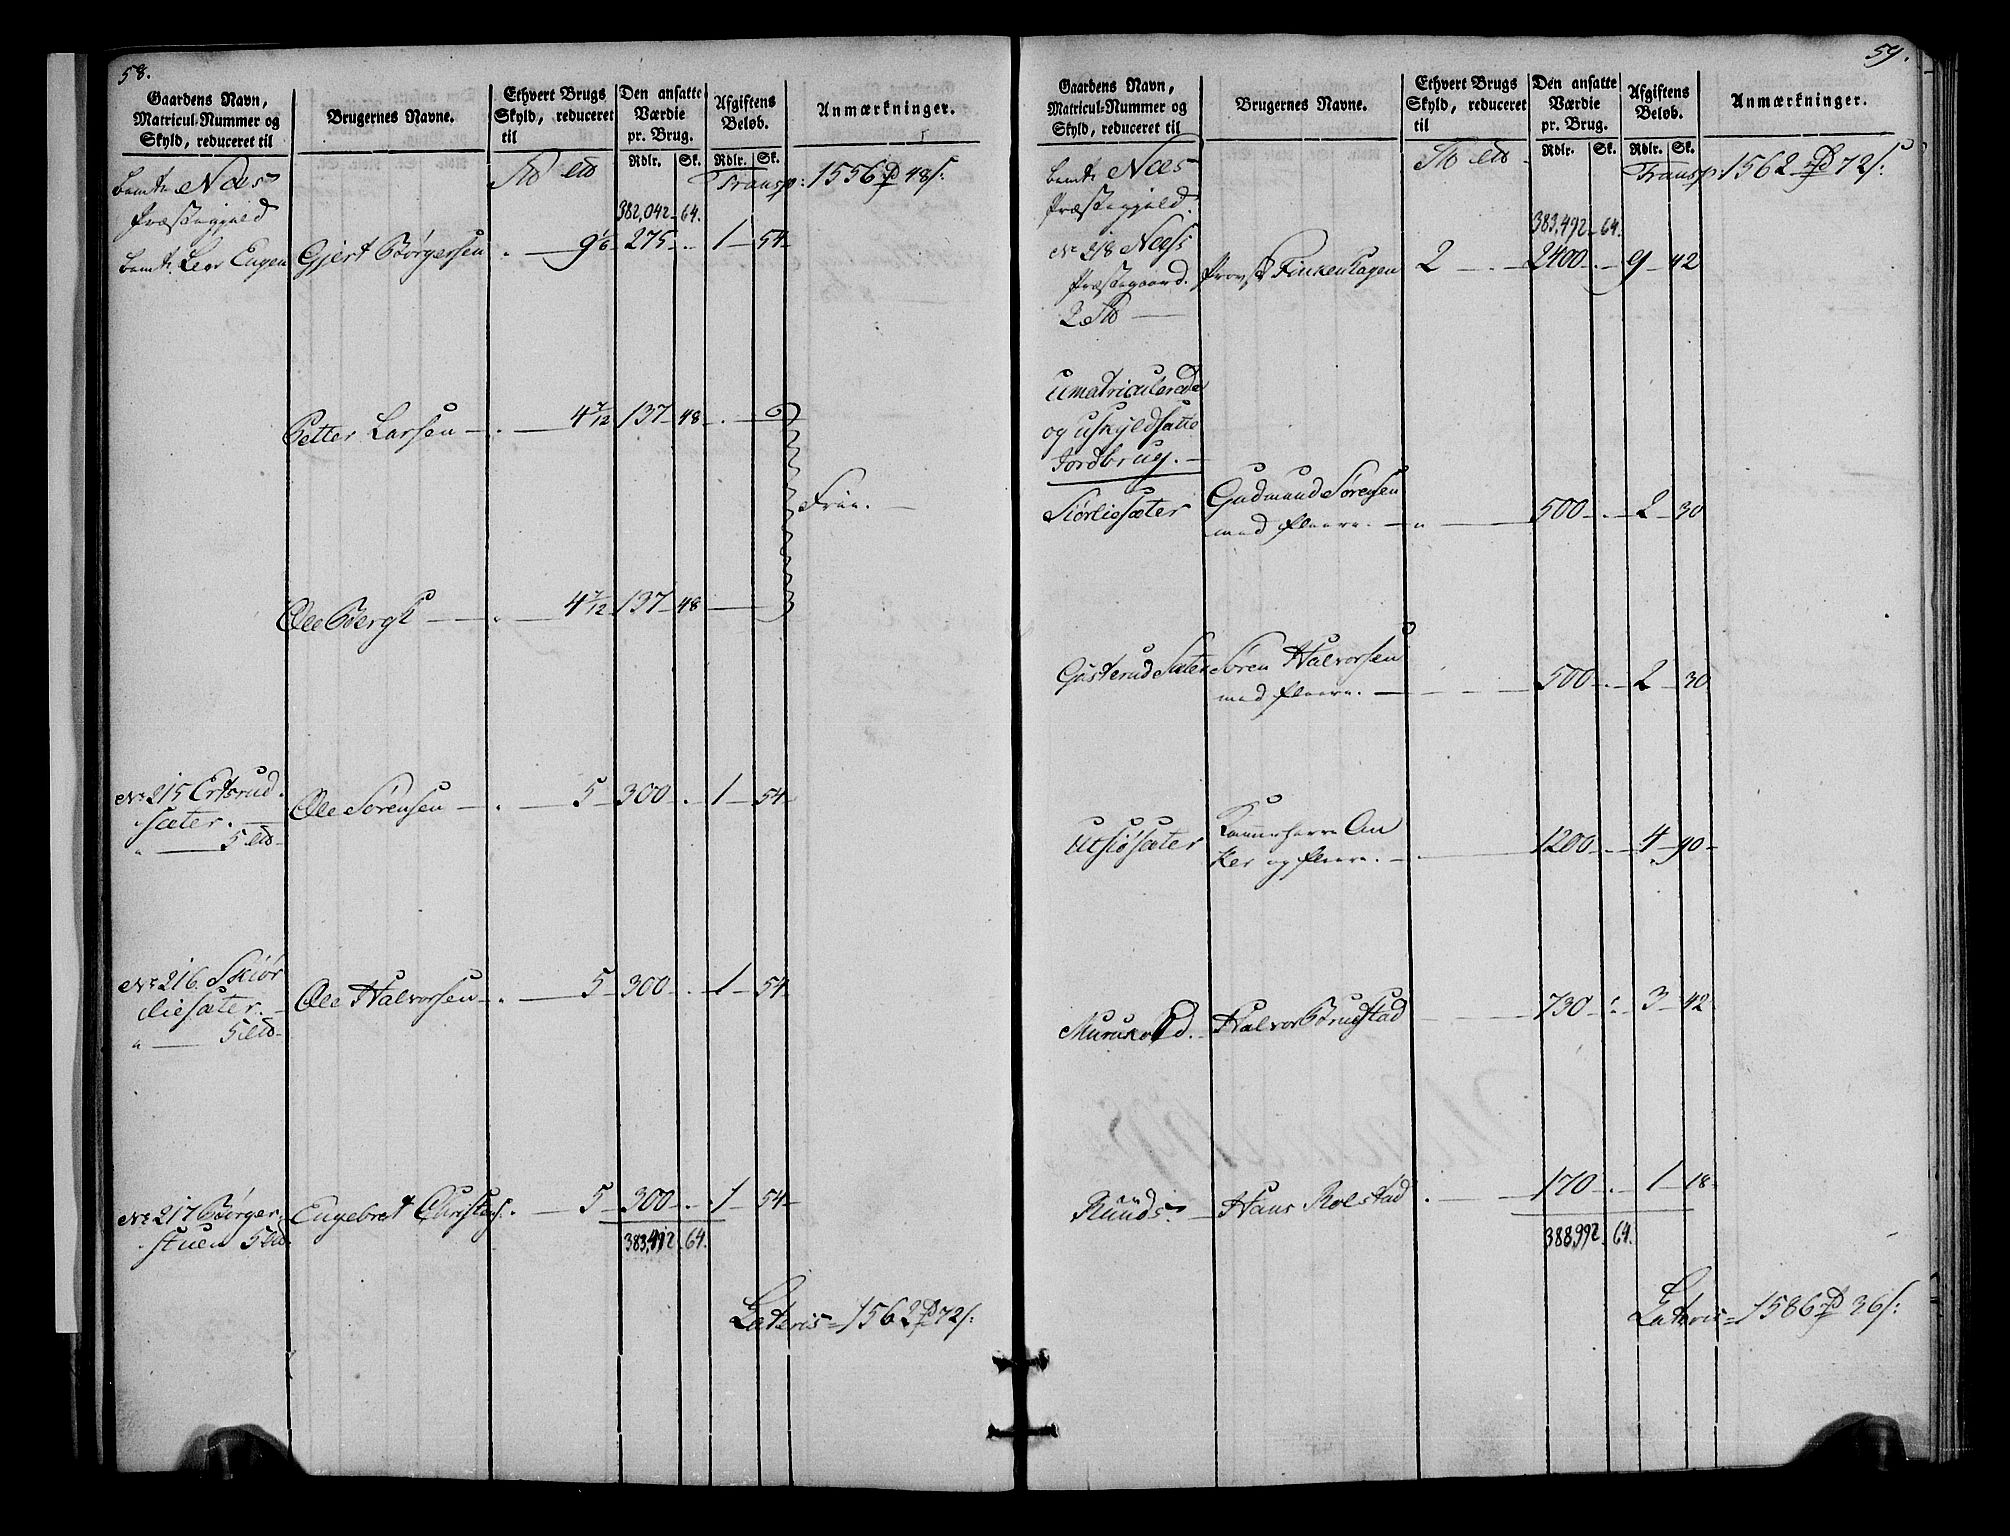 58.
Gaardens Navn,
Matricul-Nummer og
Skyld, reduceret til
Brugernes Navne.
Ethvert Brugs
Skyld, reduceret
til
Den ansatte
Værdie
pr. Brug.
Rdlr. Sk.
Afgiftens
Beløb.
Rdlr. Sk.
Anmærkninger.
Transp: 1556 48
Næs
Præstegjeld
382,042 64.
Gjert Børgersen 9 1/6 275 1 54
Petter Larsen 4 7/12 137 48
Frie.
Ole Bergh 4 7/12 137 48
No 215 Ertsrud
sæter.
5
Ole Sørensen 5 300 1 54
No 216. Skiør
liesæter.
5
Ole Halvorsen 5 300 1 54
No 217 Børger
stuen 5
Engebret Christens: 5 300 1 54
383,492 64.
Lateris = 1562 72
59.
Gaardens Navn,
Matricul-Nummer og
Skyld, reduceret til
Brugernes Navne.
Ethvert Brugs
Skyld, reduceret
til
Den ansatte
Værdie
pr. Brug.
Rdlr. Sk.
Afgiftens
Beløb.
Rdlr. Sk.
Anmærkninger.
Transp: 1562 72
Næs
Præstegjeld.
383,492 64.
No 218 Næss
Præstegaard.
2
Provst Finkenhagen 2 2400 9 42
Umatriculerede
og uskyldsatte
Jordbrug.
Siørliesæter
Gudmund Sørensen
med fleere. 500 2 30
Gusterud Sæter Søren Halvorsen
med fleere. 500 2 30
Utsiøsæter
Kammerherre An
ker og fleere. 1200 4 90
Halvor Brustad 730 3 42
Hans Rolstad 170 1 18
388,992 64.
Lateris = 1586 36